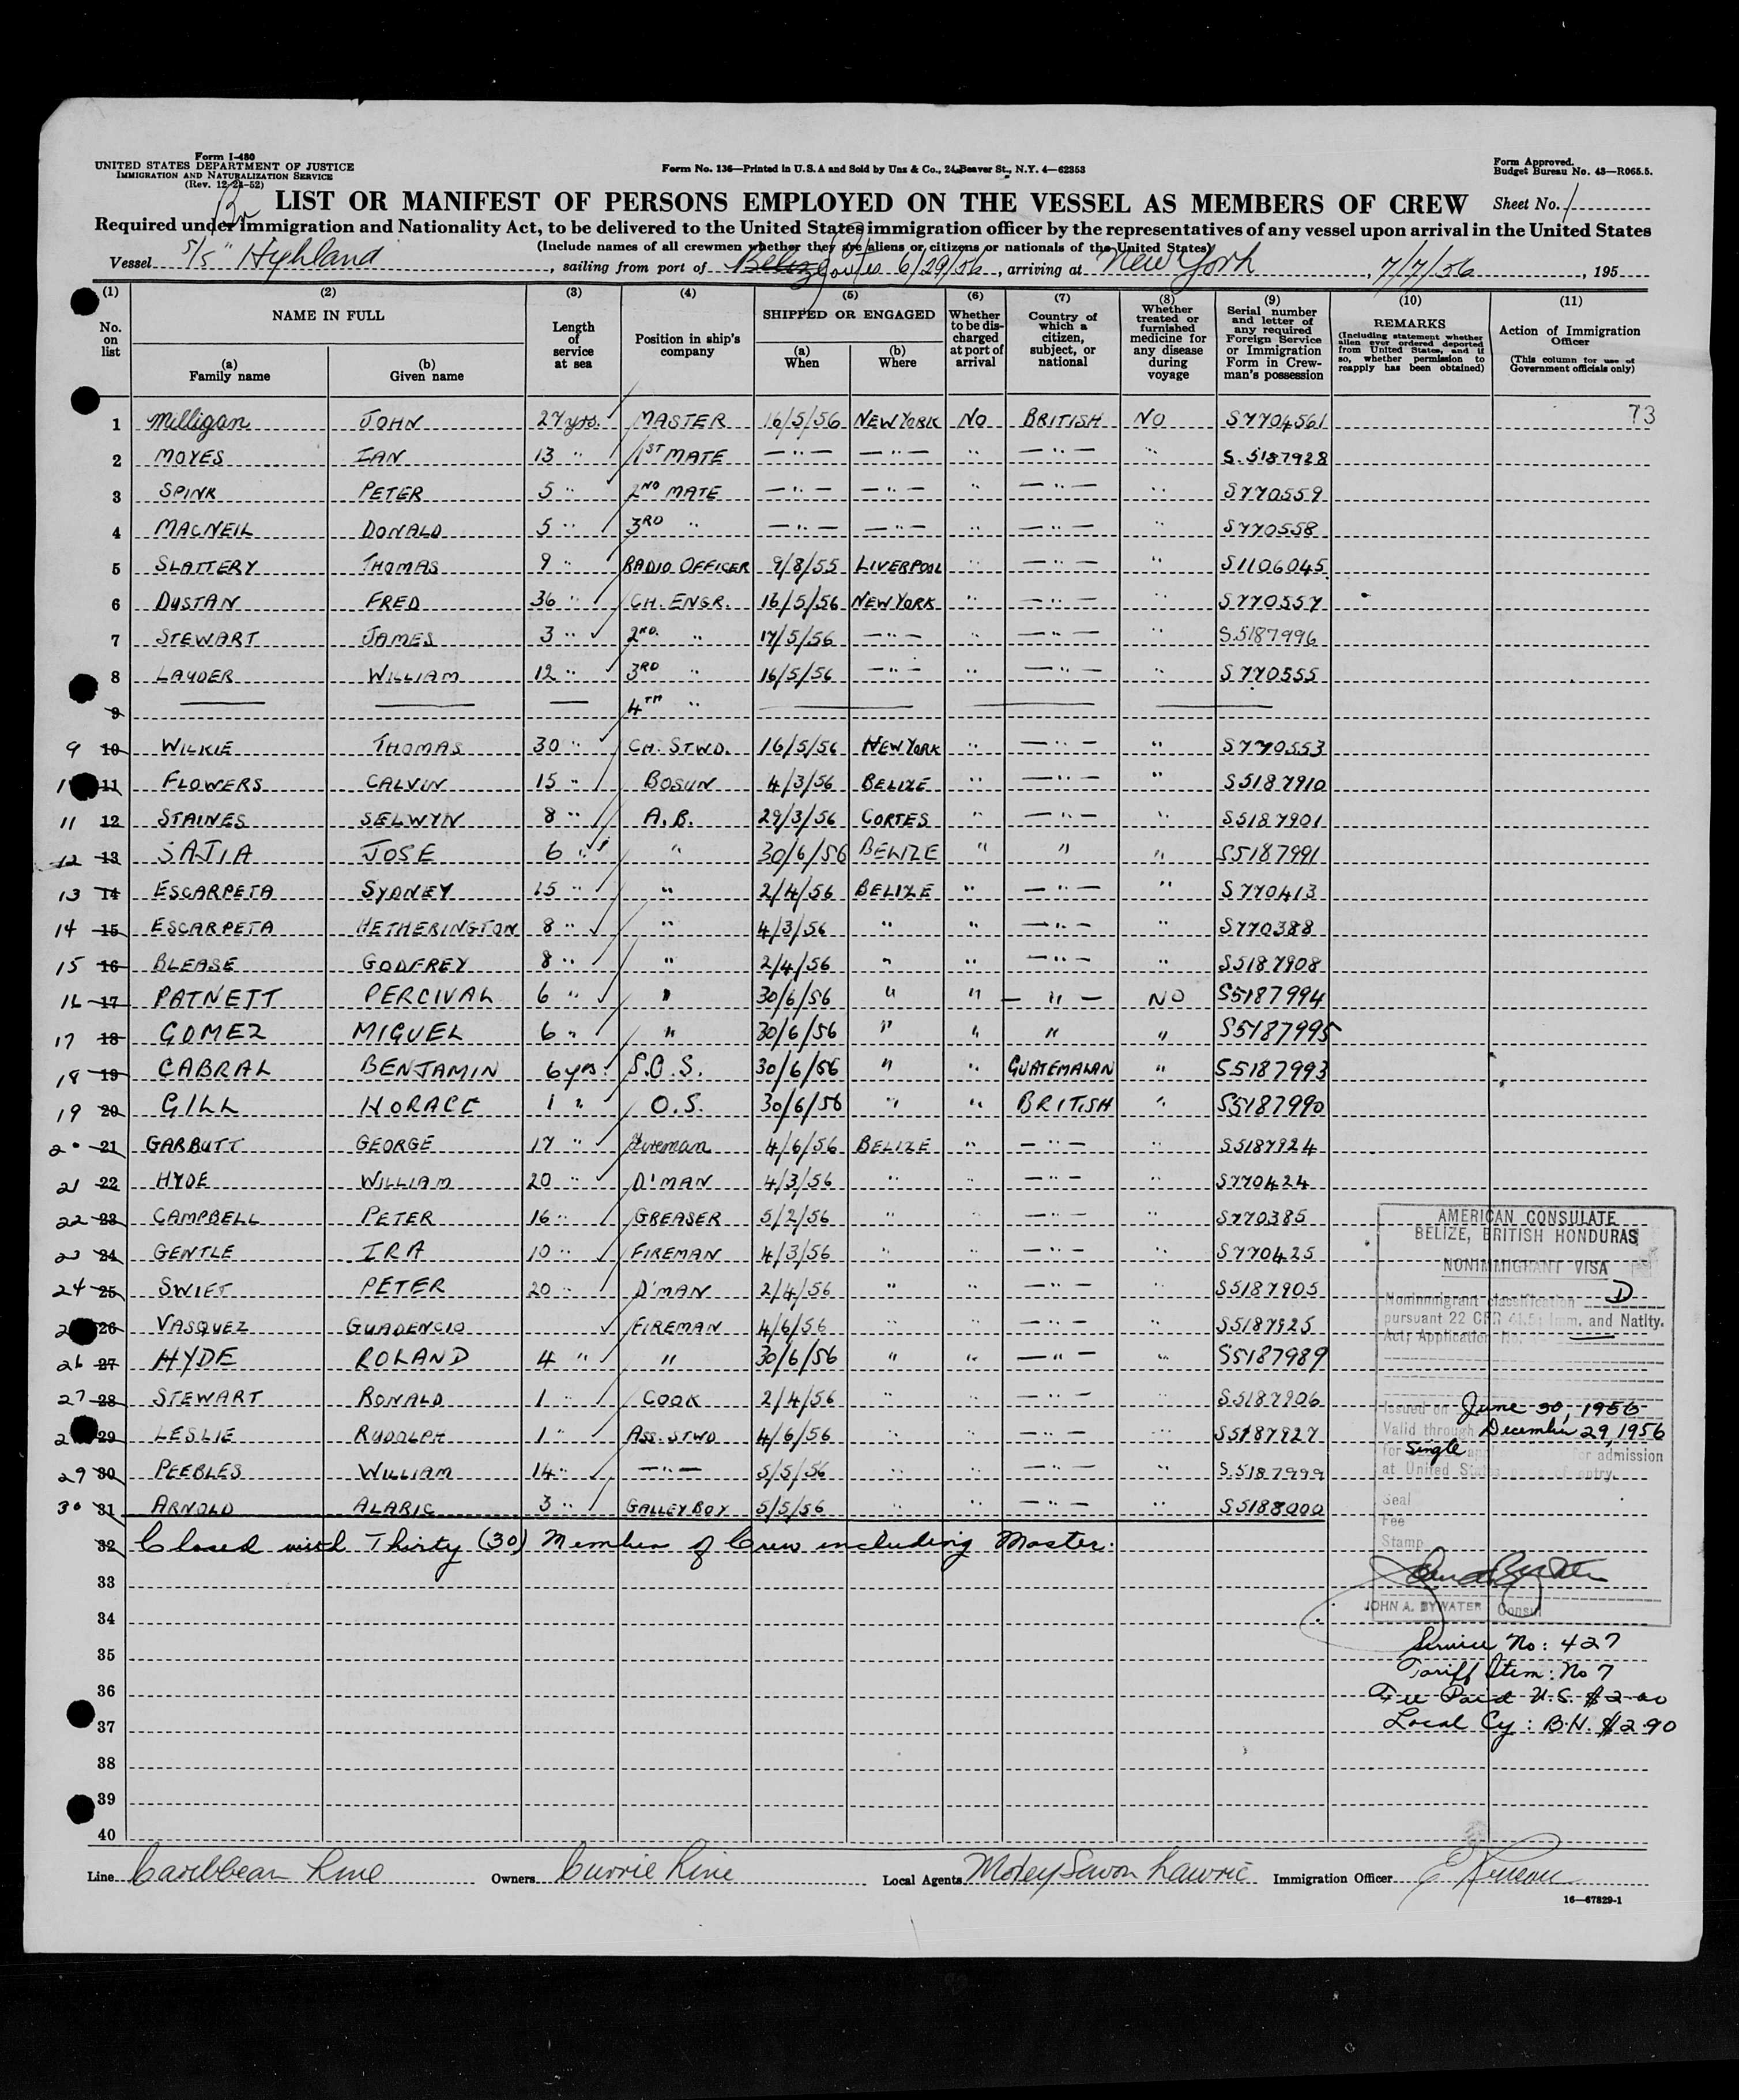 Form I-480
UNITED STATES DEPARTMENT OF JUSTICE
IMMIGRATION AND NATURALIZATION SERVICE
(Rev. 12-24-52)
Form No. 136—Printed in U.S.A and Sold by Unz & Co., 24 Beaver St., N.Y. 4—62353
Form Approved.
Budget Bureau No. 43—R065.5.
Br
LIST OR MANIFEST OF PERSONS EMPLOYED ON THE VESSEL AS MEMBERS OF CREW
Sheet No. 1
Required under Immigration and Nationality Act, to be delivered to the United States immigration officer by the representatives of any vessel upon arrival in the United States
(Include names of all crewmen whether they are aliens or citizens or nationals of the United States)
Vessel S/S "Hyhland , sailing from port of Belize 6/29/56, arriving at New York , 7/7/56 , 195
(1) No. on list
(2) NAME IN FULL
(a) Family name (b) Given name
(3) Length of service at sea
(4) Position in ship's company
(5) SHIPPED OR ENGAGED
(a) When (b) Where
(6) Whether to be discharged at port of arrival
(7) Country of which a citizen, subject, or national
(8) Whether treated or furnished medicine for any disease during voyage
(9) Serial number and letter of any required Foreign Service or Immigration Form in Crewman's possession
(10) REMARKS (Including statement whether alien ever ordered deported from United States, and if so, whether permission to reapply has been obtained)
(11) Action of Immigration Officer (This column for use of Government officials only)
1 Milligan JOHN 27 yrs. MASTER 16/5/56 NEW YORK NO BRITISH NO S7704561 73
2 MOYES IAN 13 " 1ST MATE — " — — " — " — " — " S.5187928
3 SPINK PETER 5 " 2ND MATE — " — — " — " — " — " S770559
4 MACNEIL DONALD 5 " 3RD " — " — — " — " — " — " S770558
5 SLATTERY THOMAS 9 " RADIO OFFICER 9/8/55 LIVERPOOL " — " — " S1106045
6 DUSTAN FRED 36 " CH. ENGR. 16/5/56 NEW YORK " — " — " S770557
7 STEWART JAMES 3 " 2ND. " 17/5/56 — " — " — " — " S.5187996
8 LAUDER WILLIAM 12 " 3RD " 16/5/56 — " — " — " — " S770555
9 — — — 4TH " — — —
9 10 WILKIE THOMAS 30 " CH. STWD. 16/5/56 NEW YORK " — " — " S770553
11 FLOWERS CALVIN 15 " BOSUN 4/3/56 BELIZE " — " — " S5187910
11 12 STAINES SELWYN 8 " A.B. 29/3/56 CORTES " — " — " S5187901
12 13 SAJIA JOSE 6 " " 30/6/56 BELIZE " " " S5187991
13 14 ESCARPETA SYDNEY 15 " " 2/4/56 BELIZE " — " — " S770413
14 15 ESCARPETA HETHERINGTON 8 " " 4/3/56 " " — " — " S770388
15 16 BLEASE GODFREY 8 " " 2/4/56 " " — " — " S5187908
16 17 PATNETT PERCIVAL 6 " " 30/6/56 " " — " — NO S5187994
17 18 GOMEZ MIGUEL 6 " " 30/6/56 " " " " S5187995
18 19 CABRAL BENJAMIN 6 yrs. S.O.S. 30/6/56 " " GUATEMALAN " S5187993
19 20 GILL HORACE 1 " O.S. 30/6/56 " " BRITISH " S5187990
20 21 GARBUTT GEORGE 17 " Fireman 4/6/56 BELIZE " — " — " S5187924
21 22 HYDE WILLIAM 20 " D'MAN 4/3/56 " " — " — " S770424
22 23 CAMPBELL PETER 16 " GREASER 5/2/56 " " — " — " S770385
23 24 GENTLE IRA 10 " FIREMAN 4/3/56 " " — " — " S770425
24 25 SWIFT PETER 20 " D'MAN 2/4/56 " " — " — " S5187905
26 VASQUEZ GUADENCIO FIREMAN 4/6/56 " " — " — " S5187925
26 27 HYDE ROLAND 4 " " 30/6/56 " " — " — " S5187989
27 28 STEWART RONALD 1 " COOK 2/4/56 " " — " — " S5187906
29 LESLIE RUDOLPH 1 " ASS. STWD 4/6/56 " " — " — " S5187927
29 30 PEEBLES WILLIAM 14 " — " — 5/5/56 " " — " — " S.5187999
30 31 ARNOLD ALARIC 3 " GALLEY BOY 5/5/56 " " — " — " S5188000
32 Closed with Thirty (30) Members of Crew including Master.
33
34
35
36
37
38
39
40
AMERICAN CONSULATE
BELIZE, BRITISH HONDURAS
NONIMMIGRANT VISA
Nonimmigrant classification D
pursuant 22 CFR 41.5; Imm. and Natlty.
Act; Application No.
Issued on June 30, 1956
Valid through December 29, 1956
for Single for admission
at United States ports of entry.
Seal
Fee
Stamp
JOHN A. BYWATER Consul
Service No: 427
Tariff Item: No 7
Fee Paid U.S. $2.00
Local Cy: B.H. $2.90
Line Caribbean Line Owners Currie Line Local Agents Immigration Officer
16—67829-1